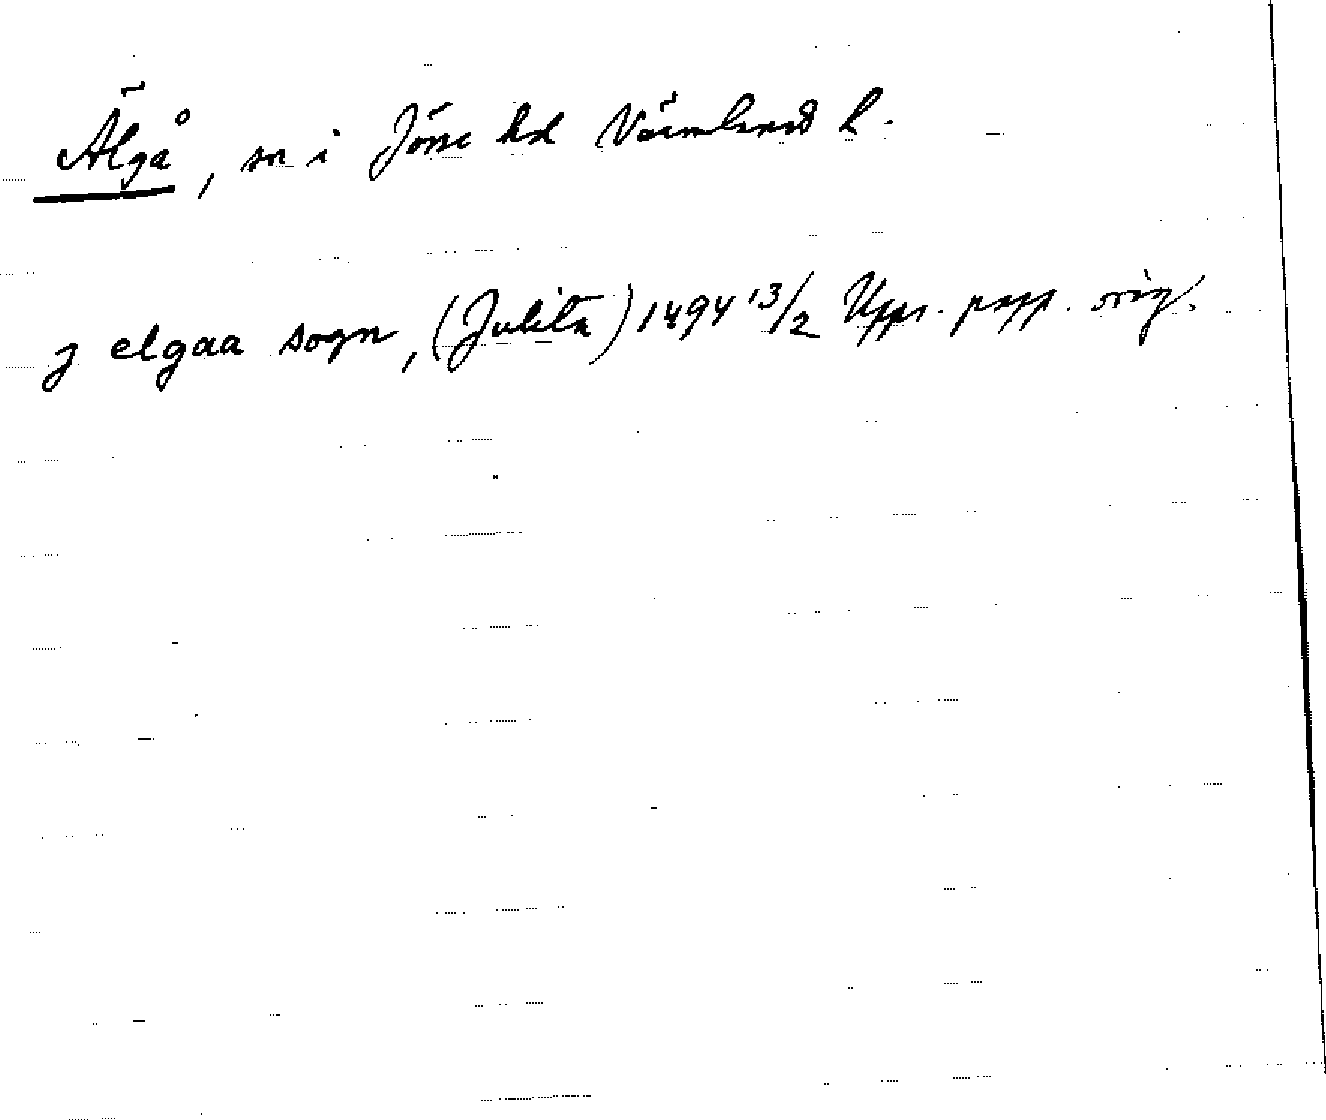 Älgå, sn i Jösse hd Värmlands l.
j elgaa sogn, (Julita) 1494 13/2 Upps. papp. orig.